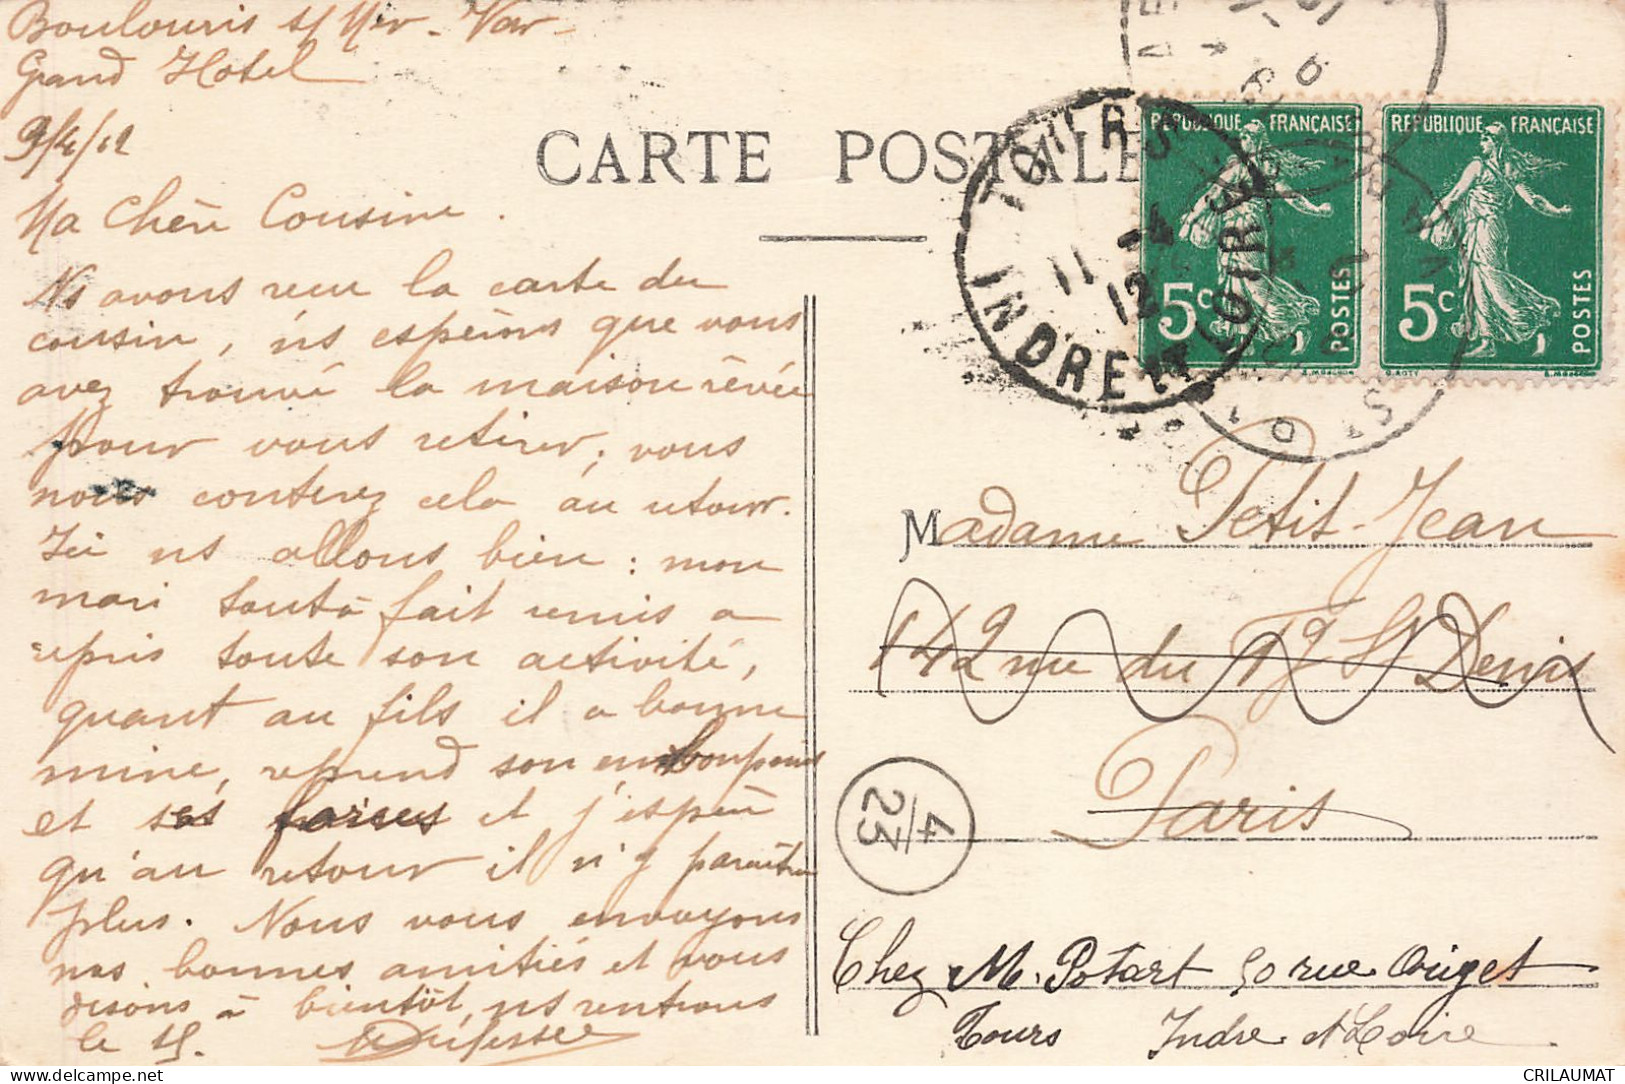 Boulouris s/ Mer - Var -
Grand Hotel
9/4/12
Ma Chère Cousine.
Ns avons reçu la carte du
cousin, ns espérons que vous
avez trouvé la maison rêvée
pour vous retirer; vous
nous conterez cela au retour.
Ici ns allons bien: mon
mari tout à fait remis a
repris toute son activité,
quant au fils il a bonne
mine, reprend son embonpoint
et ses forces et j'espère
qu'au retour il n'y paraîtra
plus. Nous vous envoyons
nos bonnes amitiés et vous
disons à bientôt, ns rentrons
le 15.
CARTE POSTALE
TOURS
11 -4
12
INDRE ET LOIRE
REPUBLIQUE FRANÇAISE
5c POSTES
REPUBLIQUE FRANÇAISE
5c POSTES
O. ROTY
Madame Petit-Jean
142 rue du Fg St Denis
Paris
4/23
Chez M. Potart 50 rue Origet
Tours Indre et Loire
CRILAUMAT